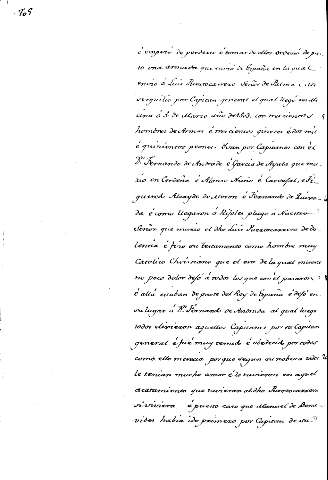 é empezó de perderse é tomar de ellos ordenó de pa-
so una armada que vino de España en la qual
envió á Luis Portocarrero Señor de Palma
por Capitan general el qual llegó
á de Marzo año de con trecientos
hombres de Armas é trecientos ginetes é dos mil
é quinientos peones. Iban por Capitanes con él
Dn. Fernando de Andrade é Garcia de Ayala que mu-
rió en Cerdeña é Alonso Niño é Carvajal, é Fi-
gueredo Alcayde de é Fernando de Quixa-
da é como llegaron á Rijoles plugo á Nuestro
Señor que murió el dho Luis Portocarrero de do-
lencia é fizo su testamento como hombre muy
Catolico Christiano que el era de la qual muerte
no poco dolor dejó á todos los que con el pasaron
é allá estaban de parte del Rey de España é dejó en
su lugar á Dn. Fernando de Andrada al qual luego
todos obedecieron aquellos Capitanes por su Capitan
general é fué muy temido é obedecido por todos
como ello merecia porque segun su nobleza todos
le tenian mucho amor é le tuvieron en aquel
acatamiento que tuvieran al dho Portocarrero
si viviera é puesto caso que Manuel de Bena-
vides habia ido primero por Capitan de su